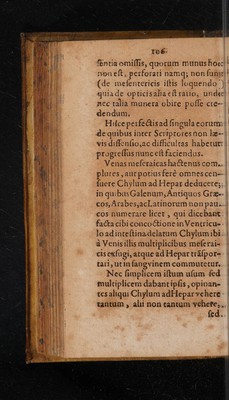 106
ſentia omiſſis, quorum munus hoc
non eſt, perforati namq; non ſunt
(de meſentericis iſtis loquendo)
quia de opticis alia eſt ratio, unde
nec talia munera obire poſſe cre-
dendum.
Hiſce perfectis ad ſingula eorum
de quibus inter Scriptores non læ-
vis diſſenſio, ac difficultas habetur
progreſſus nunc eſt faciendus.
Venas meſeraicas hactenus com-
plures, aut potius ferè omnes cen-
ſuere Chylum ad Hepar deducere;
in quibus Galenum, Antiquos Græ-
cos, Arabes, ac Latinorum non pau-
cos numerare licet, qui dicebant
facta cibi concoctione in Ventricu-
lo ad inteſtina delatum Chylum ibi
à Venis illis multiplicibus meſerai-
cis exſugi, atque ad Hepar trãſpor-
tari, ut in ſangvinem commutetur.
Nec ſimplicem iſtum uſum ſed
multiplicem dabant ipſis, opinan-
tes aliqui Chylum ad Hepar vehere
tantum, alii non tantum vehere,
ſed